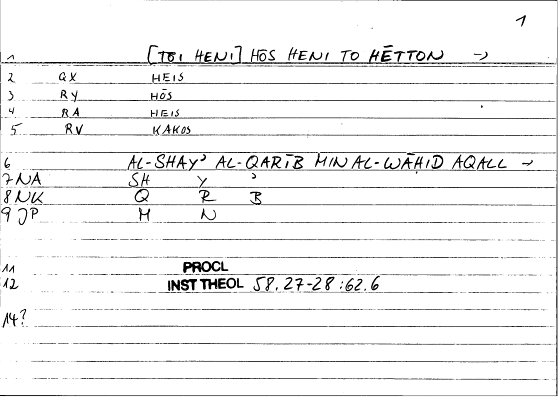 1
1 [TŌI HENI] HŌS HENI TO HĒTTON →
2 GX HEIS
3 RY HŌS
4 RA HEIS
5 RV KAKOS
6 AL-SHAYʾ AL-QARĪB MIN AL-WĀḤID AQALL →
7 NA SH Y ʾ
8 NK Q R B
9 JP M N
11 PROCL
12 INST THEOL 58.27-28:62.6
14?